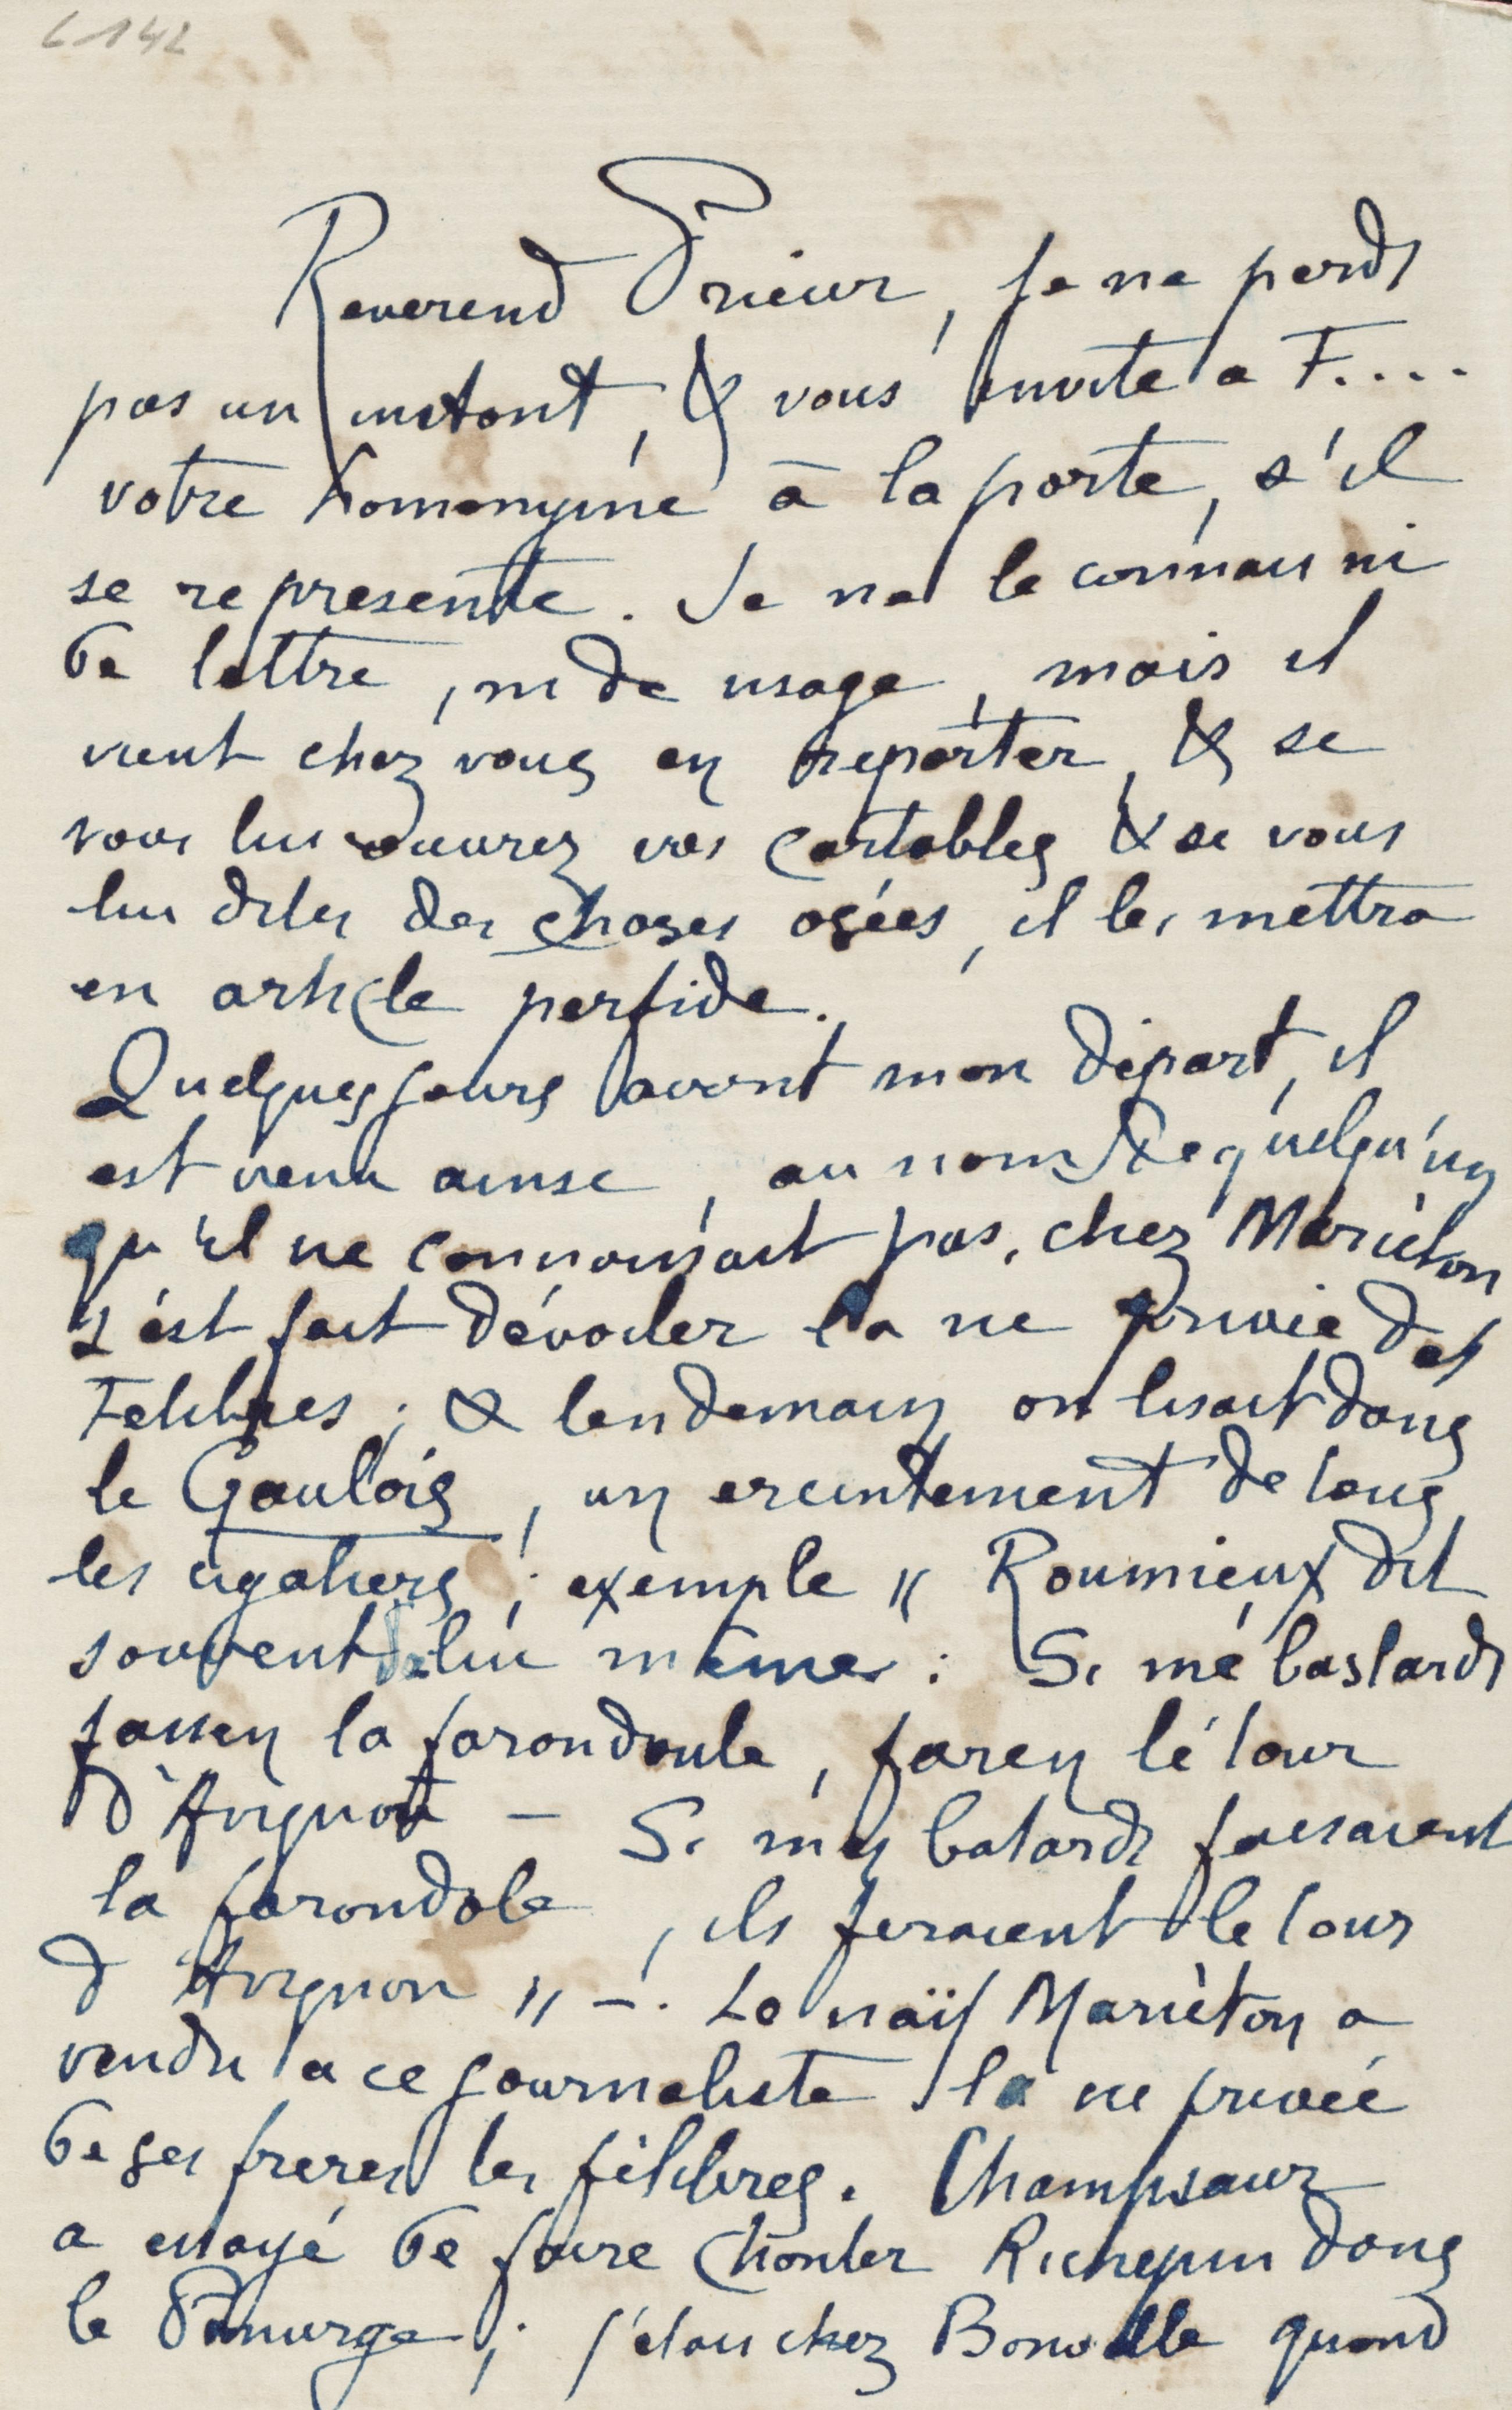 6142
Reverend Prieur, Je ne perds
pas un instant, & vous invite a F....
votre homonyme à la porte, s'il
se représente. Je ne le connais ni
de lettre, ni de usage, mais il
vient chez vous en reporter, & se
vous lui ouvrez vos cartables & se vous
lui dites des choses osées, il les mettra
en article perfide.
Quelques jours avant mon départ, il
est venu ainsi, au nom de quelqu'un
qu'il ne connaissait pas, chez Mariéton
s'est fait dévoiler la vie privée des
Felibres ; & lendemain on lisait dans
le Gaulois, un ereintement de tous
les cigaliers ; exemple " Roumieux dit
souvent de lui même : Si mé bastards
fassen la farondoule, faren lé tour
d'Avignon – Si mes batards faisaient
la farondole, ils feraient le tour
d'Avignon " –. Le naïf Mariéton a
vendu a ce journaliste la vie privée
de ses freres les félibres. Champsaur
a essayé de faire chanter Richepin dans
le Panurge ; j'étais chez Bonville quand